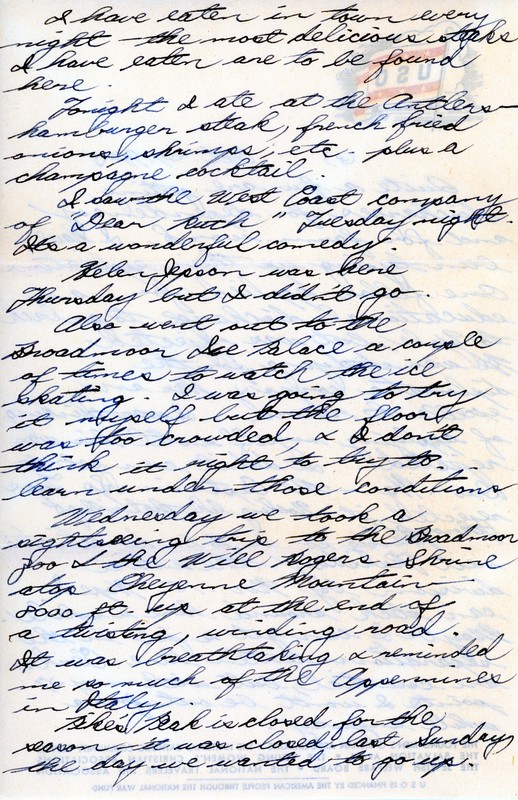 I have eaten in town every
night - the most delicious steaks
I have eaten are to be found
here.
Tonight I ate at the Antlers -
hamburger steak, french fried
onions, shrimps, etc. plus a
champagne cocktail.
I saw the West Coast company
of "Dear Ruth" Tuesday night.
It's a wonderful comedy.
Helen Jepson was here
Thursday but I didn't go.
Also went out to the
Broadmoor Ice Palace a couple
of times to watch the ice
skating. I was going to try
it myself but the floor
was too crowded, & I don't
think it right to try to
learn under those conditions
Wednesday we took a
sightseeing trip to the Broadmoor
Zoo & the Will Rogers Shrine
atop Cheyenne Mountain
8000 ft. up at the end of
a twisting, winding road.
It was breathtaking & reminded
me so much of the Appenines
in Italy.
Pikes Peak is closed for the
season - it was closed last Sunday,
the day we wanted to go up.
USO
U S O IS FINANCED BY THE AMERICAN PEOPLE THROUGH THE NATIONAL WAR FUND